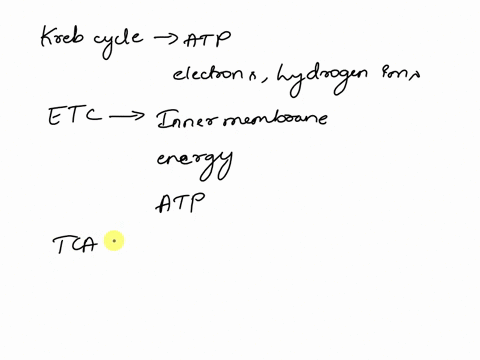 Kreb cycle → ATP
electrons, hydrogen ions
ETC → Inner membrane
energy
ATP
TCA